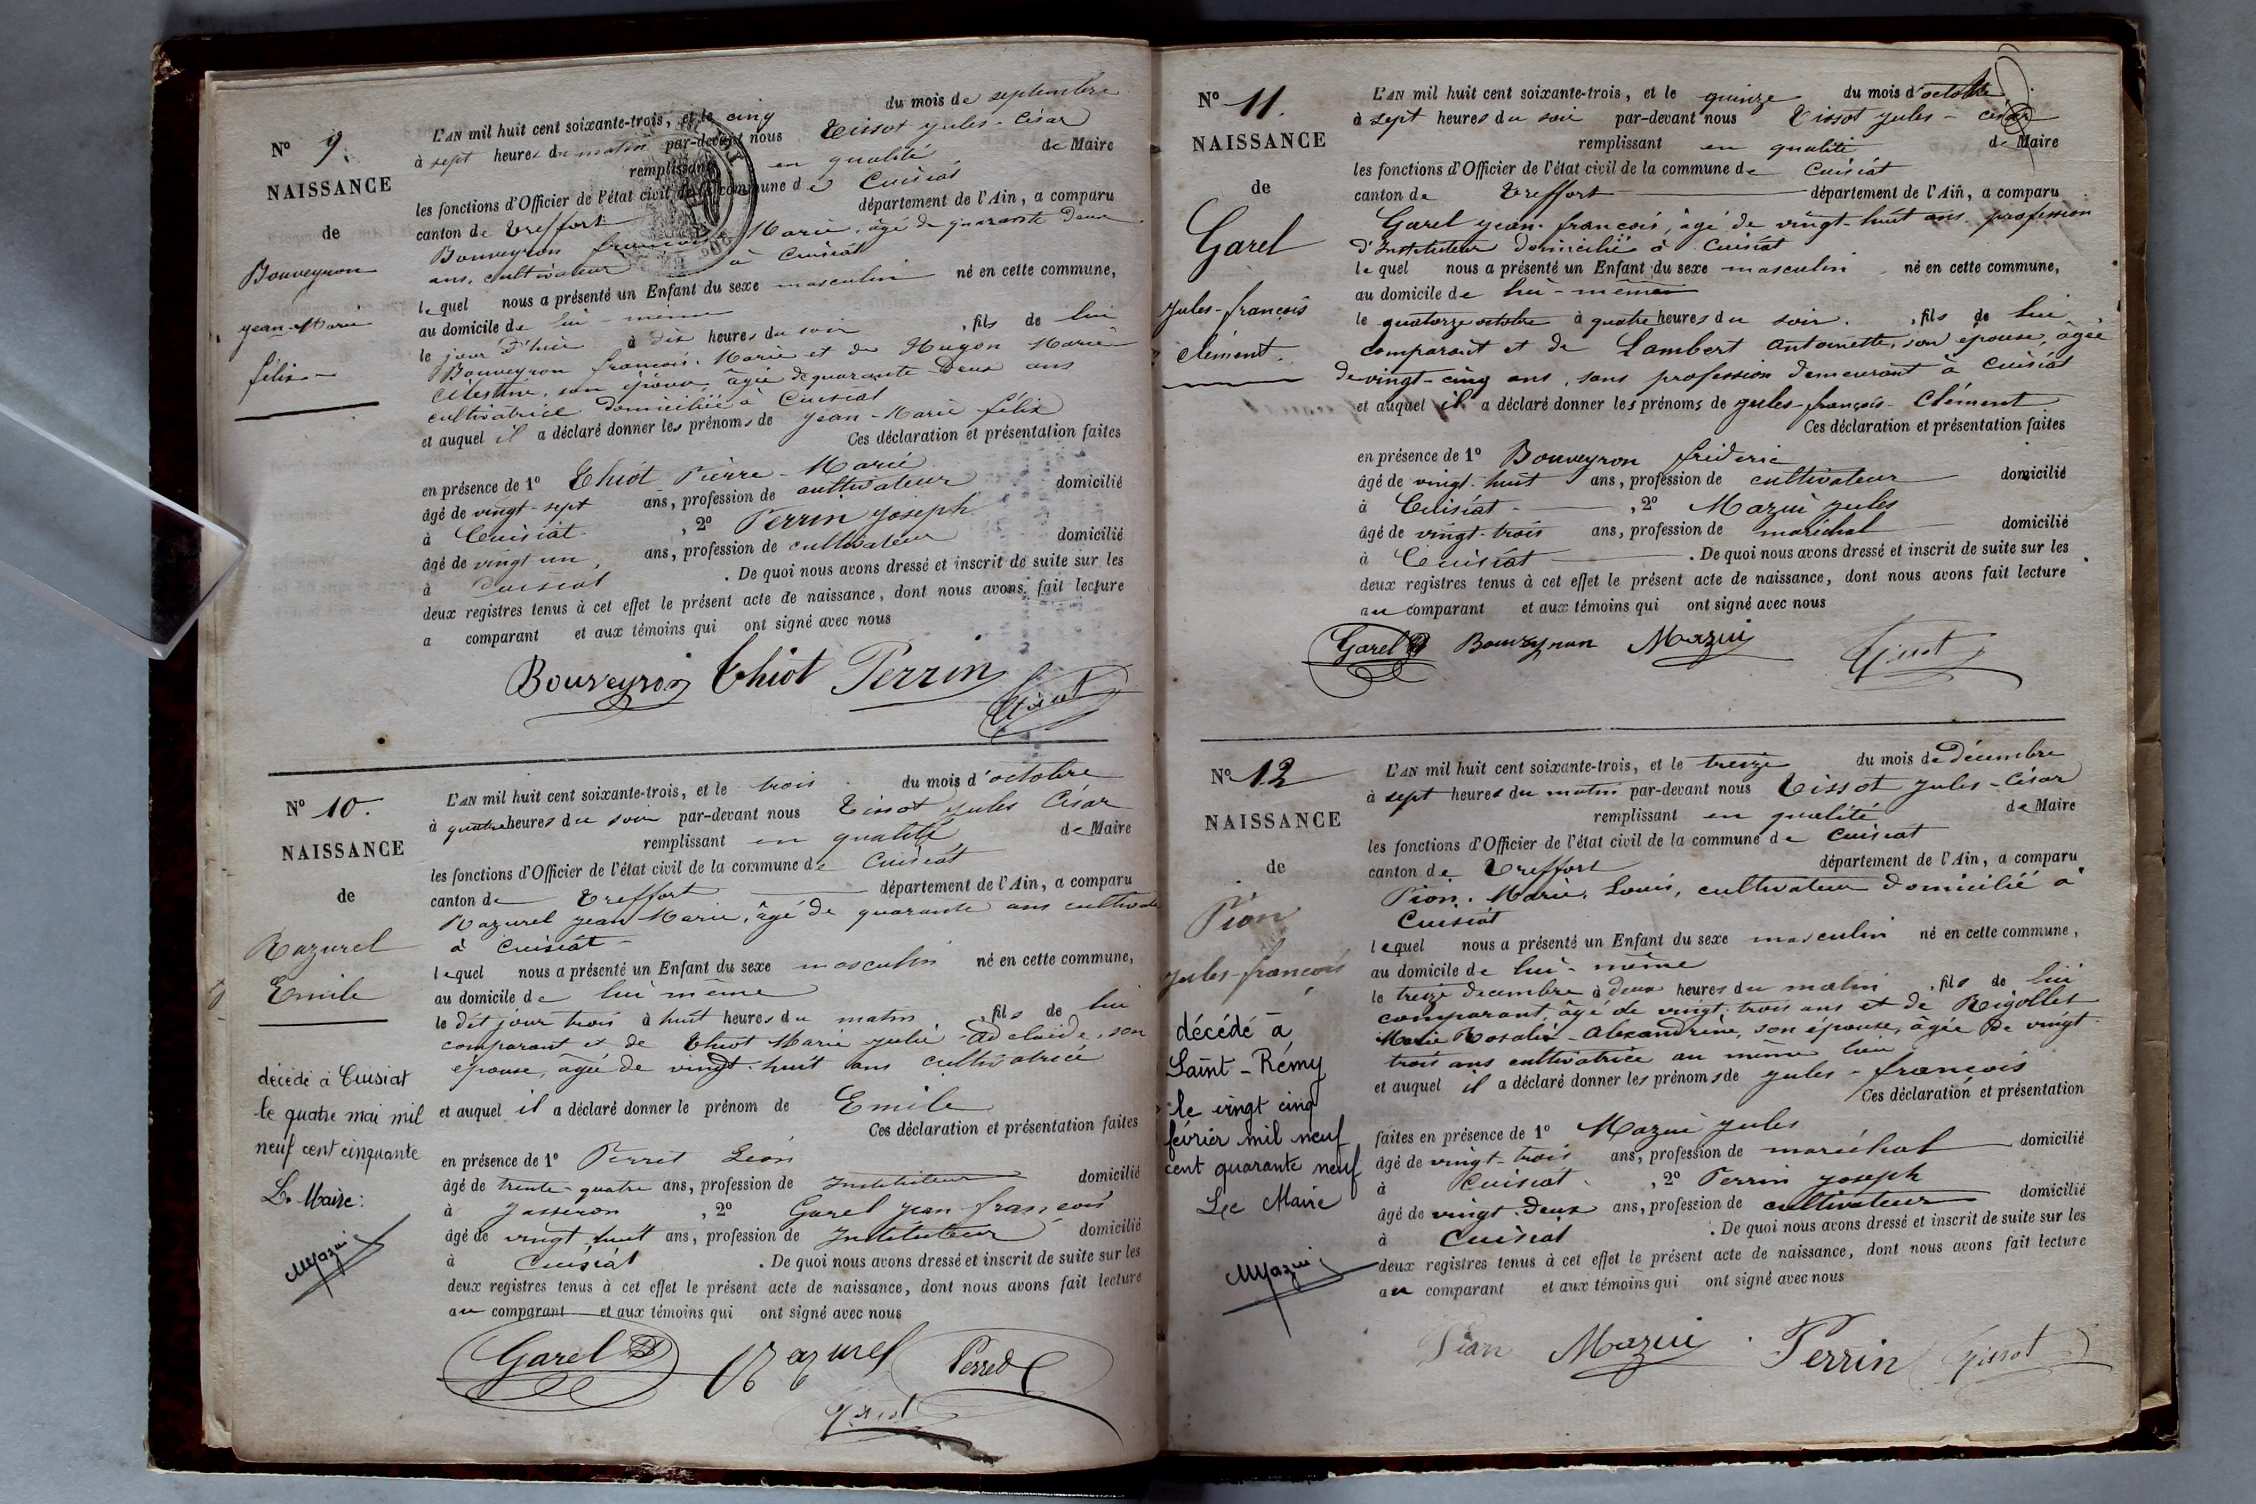 N° 9.
NAISSANCE
de
Bouveyron
jean-Marie
félix
L'AN mil huit cent soixante-trois, et le cinq du mois de septembre
à sept heures du matin par-devant nous Tissot jules-César
remplissant en qualité de Maire
les fonctions d'Officier de l'état civil de la commune de Cuisiat
canton de Treffort département de l'Ain, a comparu
Bouveyron françois Marie, âgé de quarante deux
ans, cultivateur à Cuisiat
lequel nous a présenté un Enfant du sexe masculin né en cette commune,
au domicile de lui-même
le jour d'hier à dix heures du soir, fils de lui
Bouveyron françois-Marie et de Hugon Marie
Célestine, son épouse, âgée de quarante deux ans
cultivatrice domiciliée à Cuisiat
et auquel il a déclaré donner les prénoms de jean-Marie félix
Ces déclaration et présentation faites
en présence de 1° Thiot Pierre-Marie
âgé de vingt-sept ans, profession de cultivateur domicilié
à Cuisiat, 2° Perrin joseph
âgé de vingt un, ans, profession de cultivateur domicilié
à Cuisiat. De quoi nous avons dressé et inscrit de suite sur les
deux registres tenus à cet effet le présent acte de naissance, dont nous avons fait lecture
a comparant et aux témoins qui ont signé avec nous
Bouveyron Thiot Perrin
Tissot
N° 10.
NAISSANCE
de
Razurel
Emile
décédé à Cuisiat
le quatre mai mil
neuf cent cinquante
Le Maire:
Mazui
L'AN mil huit cent soixante-trois, et le trois du mois d'octobre
à quatre heures du soir par-devant nous Tissot jules César
remplissant en qualité de Maire
les fonctions d'Officier de l'état civil de la commune de Cuisiat
canton de Treffort département de l'Ain, a comparu
Razurel jean Marie, âgé de quarante ans cultivate
à Cuisiat
lequel nous a présenté un Enfant du sexe masculin né en cette commune,
au domicile de lui même
le dit jour trois à huit heures du matin, fils de lui
comparant et de Thiot Marie julie Adélaïde, son
épouse, âgée de vingt-huit ans cultivatrice
et auquel il a déclaré donner le prénom de Emile
Ces déclaration et présentation faites
en présence de 1° Perret Léon
âgé de trente-quatre ans, profession de Instituteur domicilié
à Jasseron, 2° Garel jean françois
âgé de vingt huit ans, profession de Instituteur domicilié
à Cuisiat. De quoi nous avons dressé et inscrit de suite sur les
deux registres tenus à cet effet le présent acte de naissance, dont nous avons fait lecture
au comparant et aux témoins qui ont signé avec nous
Garel Razurel Perret
Tissot
N° 11.
NAISSANCE
de
Garel
jules-françois
clément.
L'AN mil huit cent soixante-trois, et le quinze du mois d'octobre
à sept heures du soir par-devant nous Tissot jules-César
remplissant en qualité de Maire
les fonctions d'Officier de l'état civil de la commune de Cuisiat
canton de Treffort département de l'Ain, a comparu
Garel jean-françois, âgé de vingt-huit ans profession
d'Instituteur domicilié à Cuisiat
lequel nous a présenté un Enfant du sexe masculin, né en cette commune,
au domicile de lui-même
le quatorze octobre à quatre heures du soir, fils de lui
comparant et de Lambert Antoinette, son épouse, âgée
de vingt-cinq ans, sans profession demeurant à Cuisiat
et auquel il a déclaré donner les prénoms de jules-françois-Clément
Ces déclaration et présentation faites
en présence de 1° Bouveyron fréderic
âgé de vingt-huit ans, profession de cultivateur domicilié
à Cuisiat, 2° Mazui jules
âgé de vingt-trois ans, profession de maréchal domicilié
à Cuisiat. De quoi nous avons dressé et inscrit de suite sur les
deux registres tenus à cet effet le présent acte de naissance, dont nous avons fait lecture
au comparant et aux témoins qui ont signé avec nous
Garel Bouveyron Mazui
Tissot
N° 12
NAISSANCE
de
Pion
jules-françois
décédé à
Saint-Rémy
le vingt cinq
février mil neuf
cent quarante neuf
Le Maire
Mazui
L'AN mil huit cent soixante-trois, et le treize du mois de décembre
à sept heures du matin par-devant nous Tissot jules-César
remplissant en qualité de Maire
les fonctions d'Officier de l'état civil de la commune de Cuisiat
canton de Treffort département de l'Ain, a comparu
Pion, Marie, Louis, cultivateur domicilié à
Cuisiat
lequel nous a présenté un Enfant du sexe masculin né en cette commune,
au domicile de lui-même
le treize decembre à deux heures du matin, fils de lui
comparant, âgé de vingt-trois ans et de Rigollet
Marie Rosalie-Alexandrine, son épouse, âgée de vingt
trois ans cultivatrice au même lieu
et auquel il a déclaré donner les prénoms de jules-françois
Ces déclaration et présentation
faites en présence de 1° Mazui jules
âgé de vingt-trois ans, profession de maréchal domicilié
à Cuisiat, 2° Perrin joseph
âgé de vingt-deux ans, profession de cultivateur domicilié
à Cuisiat. De quoi nous avons dressé et inscrit de suite sur les
deux registres tenus à cet effet le présent acte de naissance, dont nous avons fait lecture
au comparant et aux témoins qui ont signé avec nous
Pion Mazui Perrin Tissot